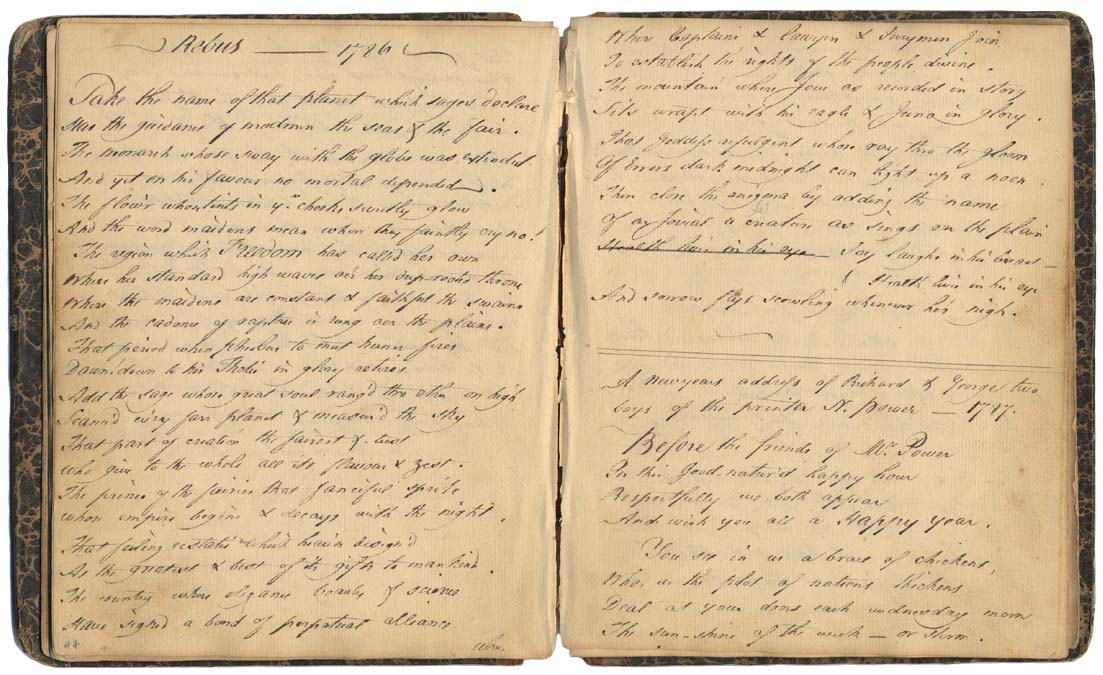 Rebus — 1786
Take the name of that planet which sages declare
Has the guidance of madmen the seas & the fair.
The monarch whose sway with the globe was extended
And yet on his favour no mortal depended.
The flow'r whose tints in yr. cheeks sweetly glow
And the word maidens mean when they faintly cry no!
The region which Freedom has called her own
Where her standard high waves o'er her throne
Where the maidens are constant & faithful the swains
And the cadence of rapture is rung oer the plains.
That period when Phœbus to mut fires
Down down to his Thetis in glory retires
Add the sage whose great soul rang'd thro ether on high
Scann'd ev'ry fair planet & measur'd the sky
That part of creation the fairest & best
Who give to the whole all its flavour & zest.
The prince of the fairies that fanciful sprite
whose empire begins & decays with the night.
That feeling ecstatic which heav'n design'd
As the greatest & best of its gifts to mankind.
The country where elegance beauty & science
Have sign'd a bond of perpetual alliance
where
44
Where Captains & Lawyers & Jurymen join
To establish the rights of the people divine.
The mountain where Jove as recorded in story
Sits wrapt with his eagle & Juno in glory.
That Goddess refulgent whose ray thro the gloom
Of Errors dark midnight can light up a noon.
Then close the enigma by adding the name
Of as jovial a creature as sings on the plain
Health lives in his eye Joy laughs in his breast —
Health lives in his eye
And sorrow flys scowling whenever he's nigh.
A new years address of Richard & George two
boys of the printer N. Power — 1787.
Before the friends of Mr. Power
In this Good-natur'd happy hour
Respectfully we both appear
And wish you all a Happy year.
You see in us a brace of chickens,
Who, as the plot of nations thickens
Deal at your doors each wednesday morn
The sun-shine of the week — or storm.